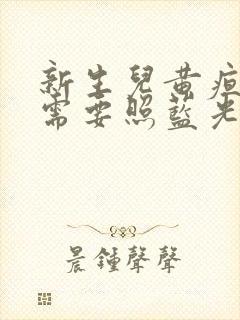 新生兒黃疸
需要照藍光
晨鍾聲聲